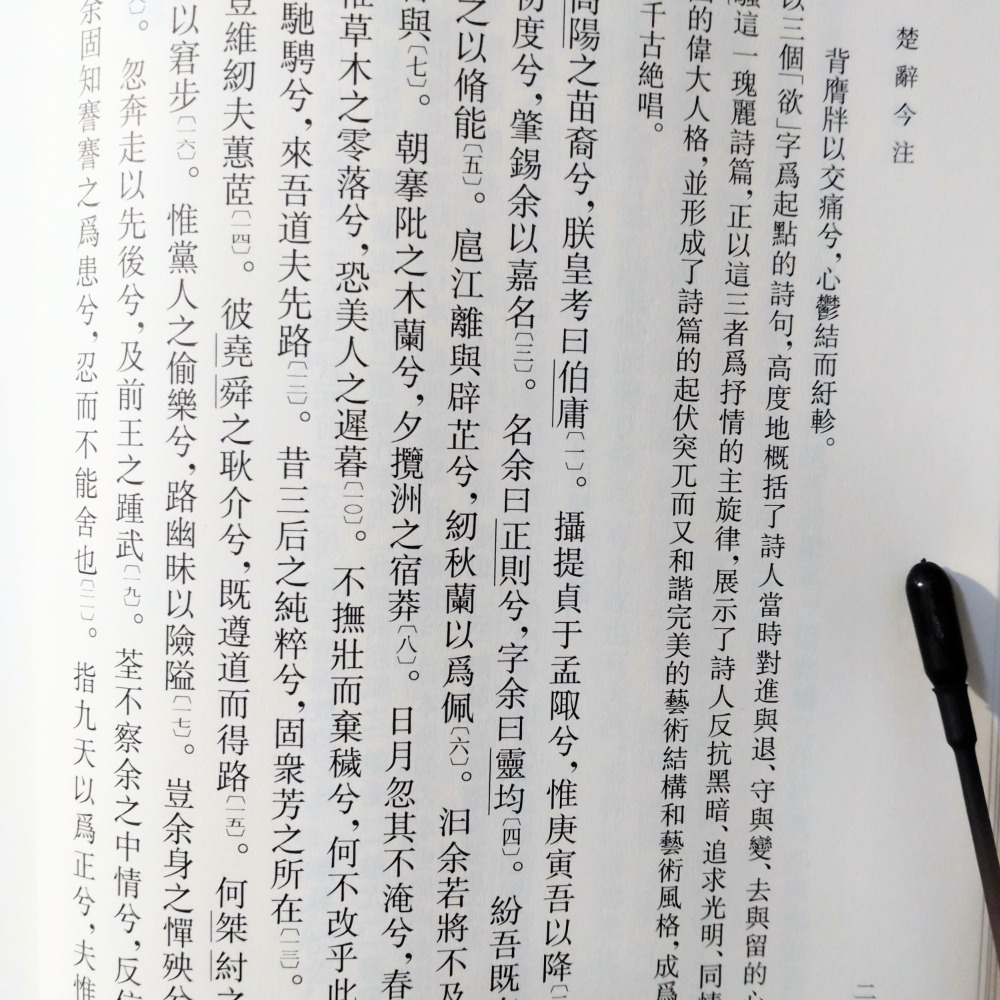 楚辭今注
背膺牉以交痛兮，心鬱結而紆軫。
以三個「欲」字爲起點的詩句，高度地概括了詩人當時對進與退、守與變、去與留的心
騷這一瑰麗詩篇，正以這三者爲抒情的主旋律，展示了詩人反抗黑暗、追求光明、同情
的偉大人格，並形成了詩篇的起伏突兀而又和諧完美的藝術結構和藝術風格，成爲
千古絶唱。
高陽之苗裔兮，朕皇考曰伯庸〔一〕。 攝提貞于孟陬兮，惟庚寅吾以降〔二
初度兮，肇錫余以嘉名〔三〕。 名余曰正則兮，字余曰靈均〔四〕。 紛吾既
之以脩能〔五〕。 扈江離與辟芷兮，紉秋蘭以爲佩〔六〕。 汩余若將不及
與〔七〕。 朝搴阰之木蘭兮，夕攬洲之宿莽〔八〕。 日月忽其不淹兮，春
惟草木之零落兮，恐美人之遲暮〔一〇〕。 不撫壯而棄穢兮，何不改乎此
馳騁兮，來吾道夫先路〔一二〕。 昔三后之純粹兮，固衆芳之所在〔一三〕。
豈維紉夫蕙茝〔一四〕。 彼堯舜之耿介兮，既遵道而得路〔一五〕。 何桀紂之
以窘步〔一六〕。 惟黨人之偷樂兮，路幽昧以險隘〔一七〕。 豈余身之憚殃兮
〕。 忽奔走以先後兮，及前王之踵武〔一九〕。 荃不察余之中情兮，反信
余固知謇謇之爲患兮，忍而不能舍也〔二一〕。 指九天以爲正兮，夫惟
二